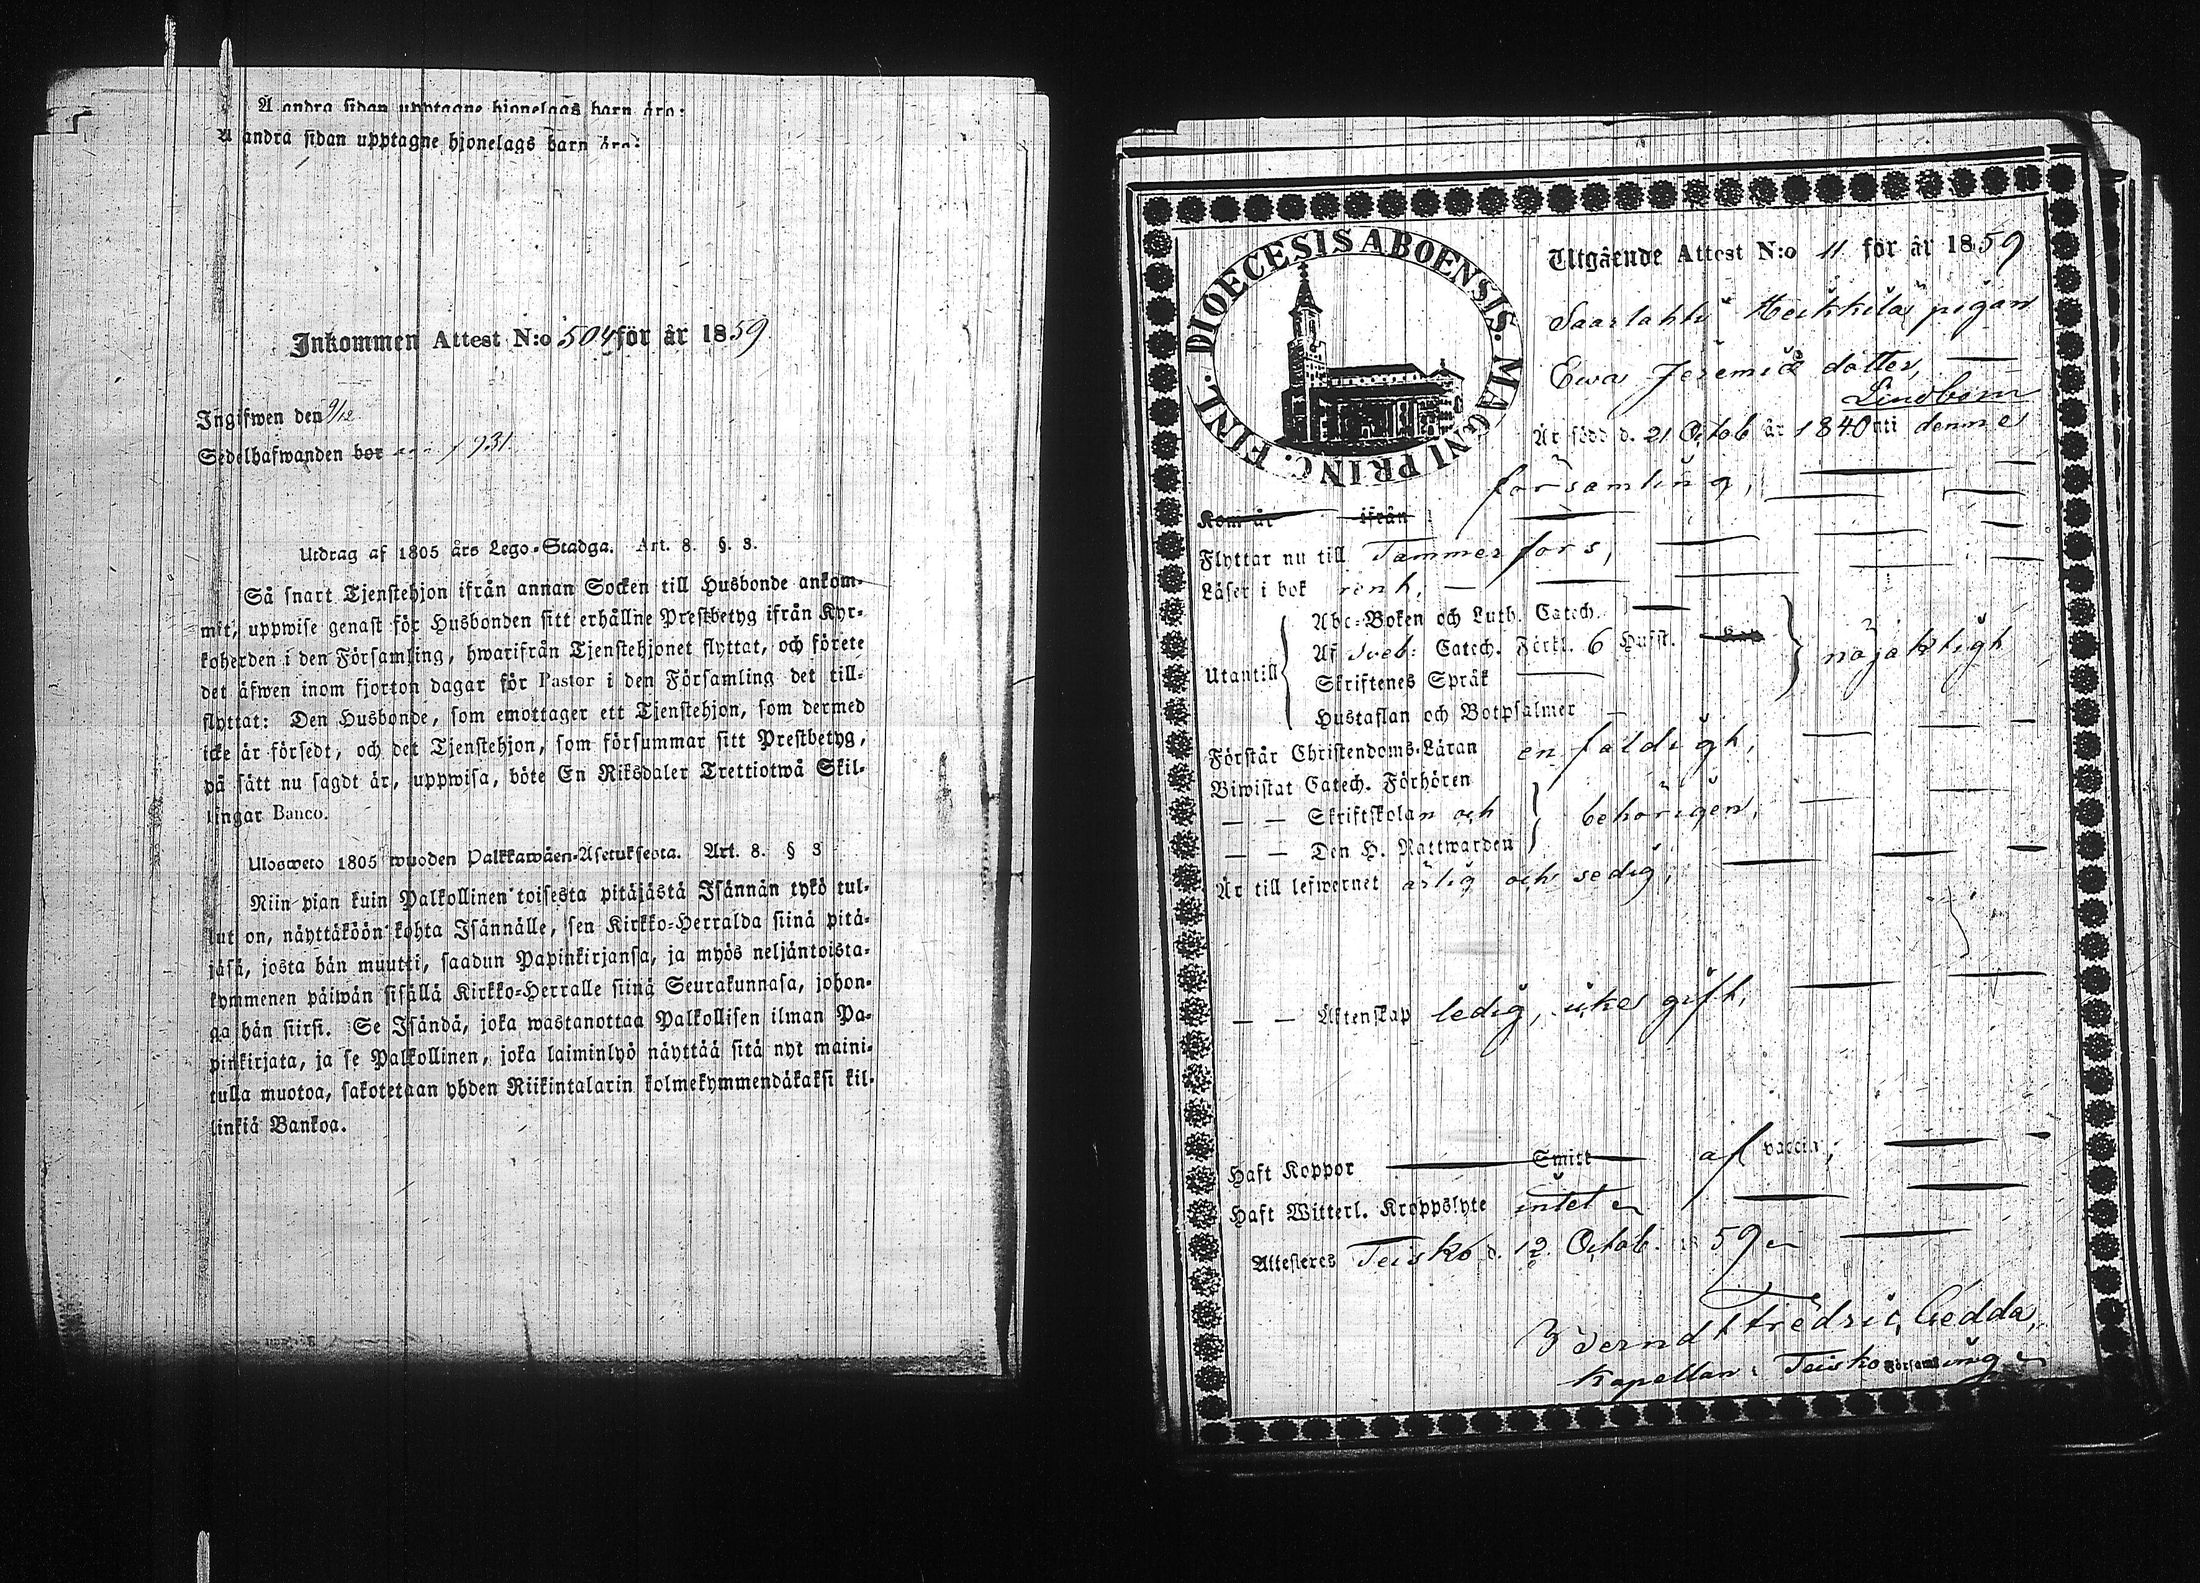 Å andra sidan upptagne hjonelags barn äro:
Å andra sidan upptagne hjonelags barn äro:
Inkommen Attest N:o 504 för år 1859
Ingifwen den 9/12
Sedelhafwanden bor 931.
Utdrag af 1805 års Lego-Stadga. Art. 8. §. 3.
Så snart Tjenstehjon ifrån annan Socken till Husbonde ankom-
mit, uppwise genast för Husbonden sitt erhållne Prestbetyg ifrån Kyr-
koherden i den Församling, hwarifrån Tjenstehjonet flyttat, och förete
det äfwen inom fjorton dagar för Pastor i den Församling det till-
flyttat: Den Husbonde, som emottager ett Tjenstehjon, som dermed
icke är försedt, och det Tjenstehjon, som försummar sitt Prestbetyg,
på sätt nu sagdt är, uppwisa, böte En Riksdaler Trettiotwå Skil-
lingar Banco.
Ulosweto 1805 wuoden Palkkawäen-Asetuksesta. Art. 8. § 3
Niin pian kuin Palkollinen toisesta pitäjästä Isännän tykö tul-
lut on, näyttäköön kohta Isännälle, sen Kirkko-Herralda siinä pitä-
jäsä, josta hän muutti, saadun Papinkirjansa, ja myös neljäntoista-
kymmenen päiwän sisällä Kirkko-Herralle siinä Seurakunnasa, johon-
ga hän siirsi. Se Isändä, joka wastanottaa Palkollisen ilman Pa-
pinkirjata, ja se Palkollinen, joka laiminlyö näyttää sitä nyt maini-
tulla muotoa, sakotetaan yhden Riikintalarin kolmekymmendäkaksi kil-
linkiä Bankoa.
DIOECESIS ABOENSIS. MAGNI PRINC. FINL.
Utgående Attest N:o 11 för år 1859
Saarlahti Heikkilas pigan
Ewa Jeremiæ dotter,
Lindbom
Är född d. 21 Octob år 1840 uti dennes
församling,
Kom år ifrån
Flyttar nu till Tammerfors,
Läser i bok rent,
Abc-Boken och Luth. Catech.
Utantill Af Sveb: Catech. Förkl. 6 Hufst. nöjaktigt
Skriftenes Språk
Hustaflan och Botpsalmer
Förstår Christendoms-Läran enfaldigt,
Biwistat Catech. Förhören
— — Skriftskolan och behörigen,
— — Den H. Nattwarden
Är till lefwernet ärlig och sedig,
— — Äktenskap ledig, icke gift,
Haft Koppor Smitt af vaccin,
Haft Witterl. Kroppslyte intet
Attesteres Teisko d. 12 Octob. 1859
Berndt Fredric Gedda,
Kapellan i Teisko Församling